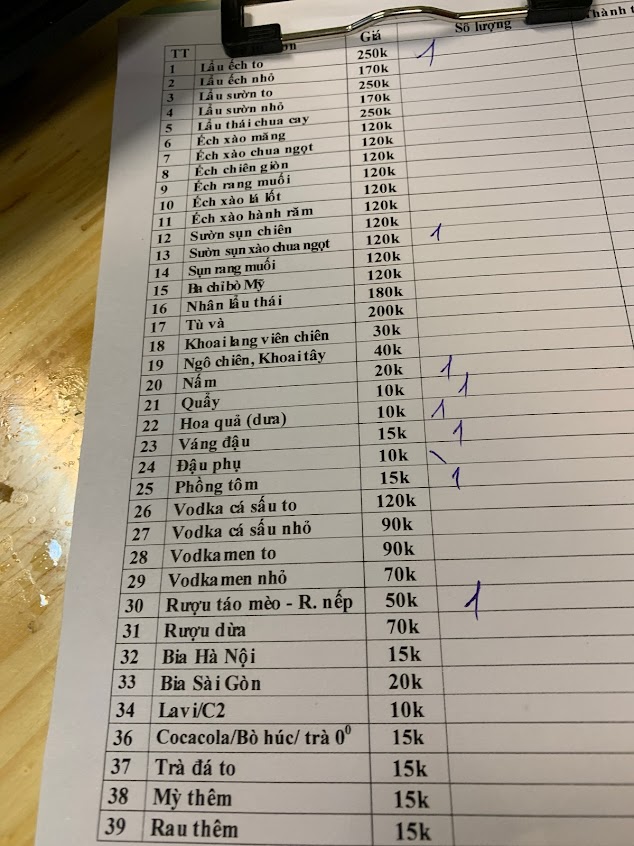 TT Giá Số lượng Thành t
1 Lẩu ếch to 250k 1
2 Lẩu ếch nhỏ 170k
3 Lẩu sườn to 250k
4 Lẩu sườn nhỏ 170k
5 Lẩu thái chua cay 250k
6 Ếch xào măng 120k
7 Ếch xào chua ngọt 120k
8 Ếch chiên giòn 120k
9 Ếch rang muối 120k
10 Ếch xào lá lốt 120k
11 Ếch xào hành răm 120k
12 Sườn sụn chiên 120k
13 Sườn sụn xào chua ngọt 120k 1
14 Sụn rang muối 120k
15 Ba chỉ bò Mỹ 120k
16 Nhân lẩu thái 180k
17 Tù và 200k
18 Khoai lang viên chiên 30k
19 Ngô chiên, Khoai tây 40k
20 Nấm 20k 1
21 Quẩy 10k 1
22 Hoa quả (dưa) 10k 1
23 Váng đậu 15k 1
24 Đậu phụ 10k \
25 Phồng tôm 15k 1
26 Vodka cá sấu to 120k
27 Vodka cá sấu nhỏ 90k
28 Vodka men to 90k
29 Vodka men nhỏ 70k
30 Rượu táo mèo - R. nếp 50k 1
31 Rượu dừa 70k
32 Bia Hà Nội 15k
33 Bia Sài Gòn 20k
34 Lavi/C2 10k
36 Cocacola/Bò húc/ trà 0⁰ 15k
37 Trà đá to 15k
38 Mỳ thêm 15k
39 Rau thêm 15k